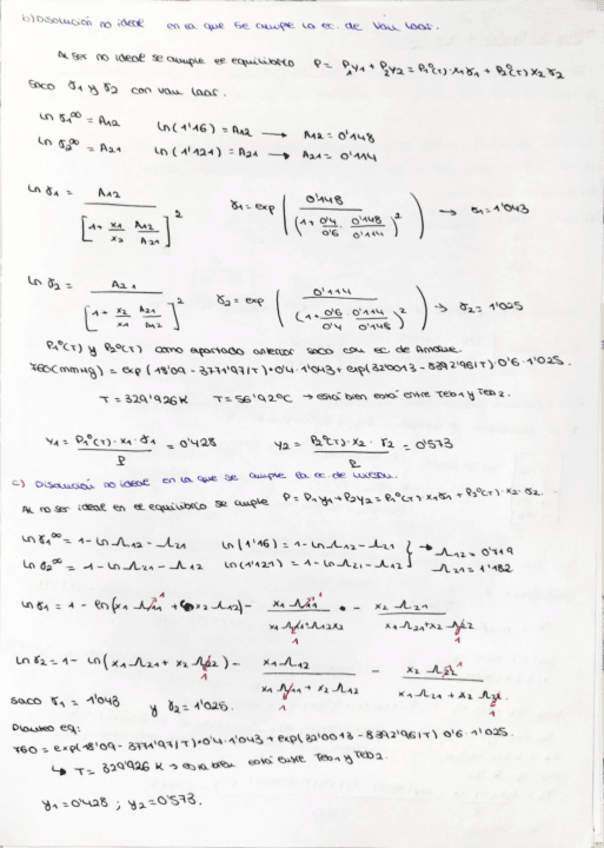 b) Disolución no ideal en la que se cumple la ec. de Van Laar.
Al ser no ideal se cumple el equilibrio P = P₁y₁ + P₂y₂ = P₁⁰(T)·x₁γ₁ + P₂⁰(T)x₂γ₂
Saco γ₁ y γ₂ con Van Laar.
ln γ₁^∞ = A₁₂ ln(1'16) = A₁₂ → A₁₂ = 0'148
ln γ₂^∞ = A₂₁ ln(1'121) = A₂₁ → A₂₁ = 0'114
ln γ₁ = A₁₂ / [1 + x₁/x₂ A₁₂/A₂₁]² γ₁ = exp (0'148 / (1 + 0'4/0'6 · 0'148/0'114)²) → γ₁ = 1'043
ln γ₂ = A₂₁ / [1 + x₂/x₁ A₂₁/A₁₂]² γ₂ = exp (0'114 / (1 + 0'6/0'4 · 0'114/0'148)²) → γ₂ = 1'025
P₁⁰(T) y P₂⁰(T) como apartado anterior saco con ec. de Antoine.
760(mmHg) = exp(18'09 - 3771'97/T)·0'4·1'043 + exp(32'0013 - 8392'96/T)·0'6·1'025.
T = 329'926K T = 56'92ºC → está bien está entre Teb1 y Teb2.
y₁ = P₁⁰(T)·x₁·γ₁ / P = 0'428 y₂ = P₂⁰(T)·x₂·γ₂ / P = 0'573
c) Disolución no ideal en la que se cumple la ec. de Wilson.
Al no ser ideal en el equilibrio se cumple P = P₁y₁ + P₂y₂ = P₁⁰(T)·x₁γ₁ + P₂⁰(T)·x₂·γ₂.
ln γ₁^∞ = 1 - ln Λ₁₂ - Λ₂₁ ln(1'16) = 1 - ln Λ₁₂ - Λ₂₁ } → Λ₁₂ = 0'719
ln γ₂^∞ = 1 - ln Λ₂₁ - Λ₁₂ ln(1'121) = 1 - ln Λ₂₁ - Λ₁₂ } Λ₂₁ = 1'182
ln γ₁ = 1 - ln(x₁ Λ₁₁ 1 + x₂ Λ₁₂) - x₁ Λ₁₁ 1 / x₁ Λ₁₁ 1 + Λ₁₂x₂ - x₂ Λ₂₁ / x₁ Λ₂₁ + x₂ Λ₂₂ 1
ln γ₂ = 1 - ln(x₁ Λ₂₁ + x₂ Λ₂₂ 1) - x₁ Λ₁₂ / x₁ Λ₁₁ 1 + x₂ Λ₁₂ - x₂ Λ₂₂ 1 / x₁ Λ₂₁ + x₂ Λ₂₂ 1
saco γ₁ = 1'043 y γ₂ = 1'025.
Planteo eq:
760 = exp(18'09 - 3771'97/T)·0'4·1'043 + exp(32'0013 - 8392'96/T) 0'6·1'025.
↳ T = 329'926 K → está bien está entre Teb1 y Teb2.
y₁ = 0'428 ; y₂ = 0'573.